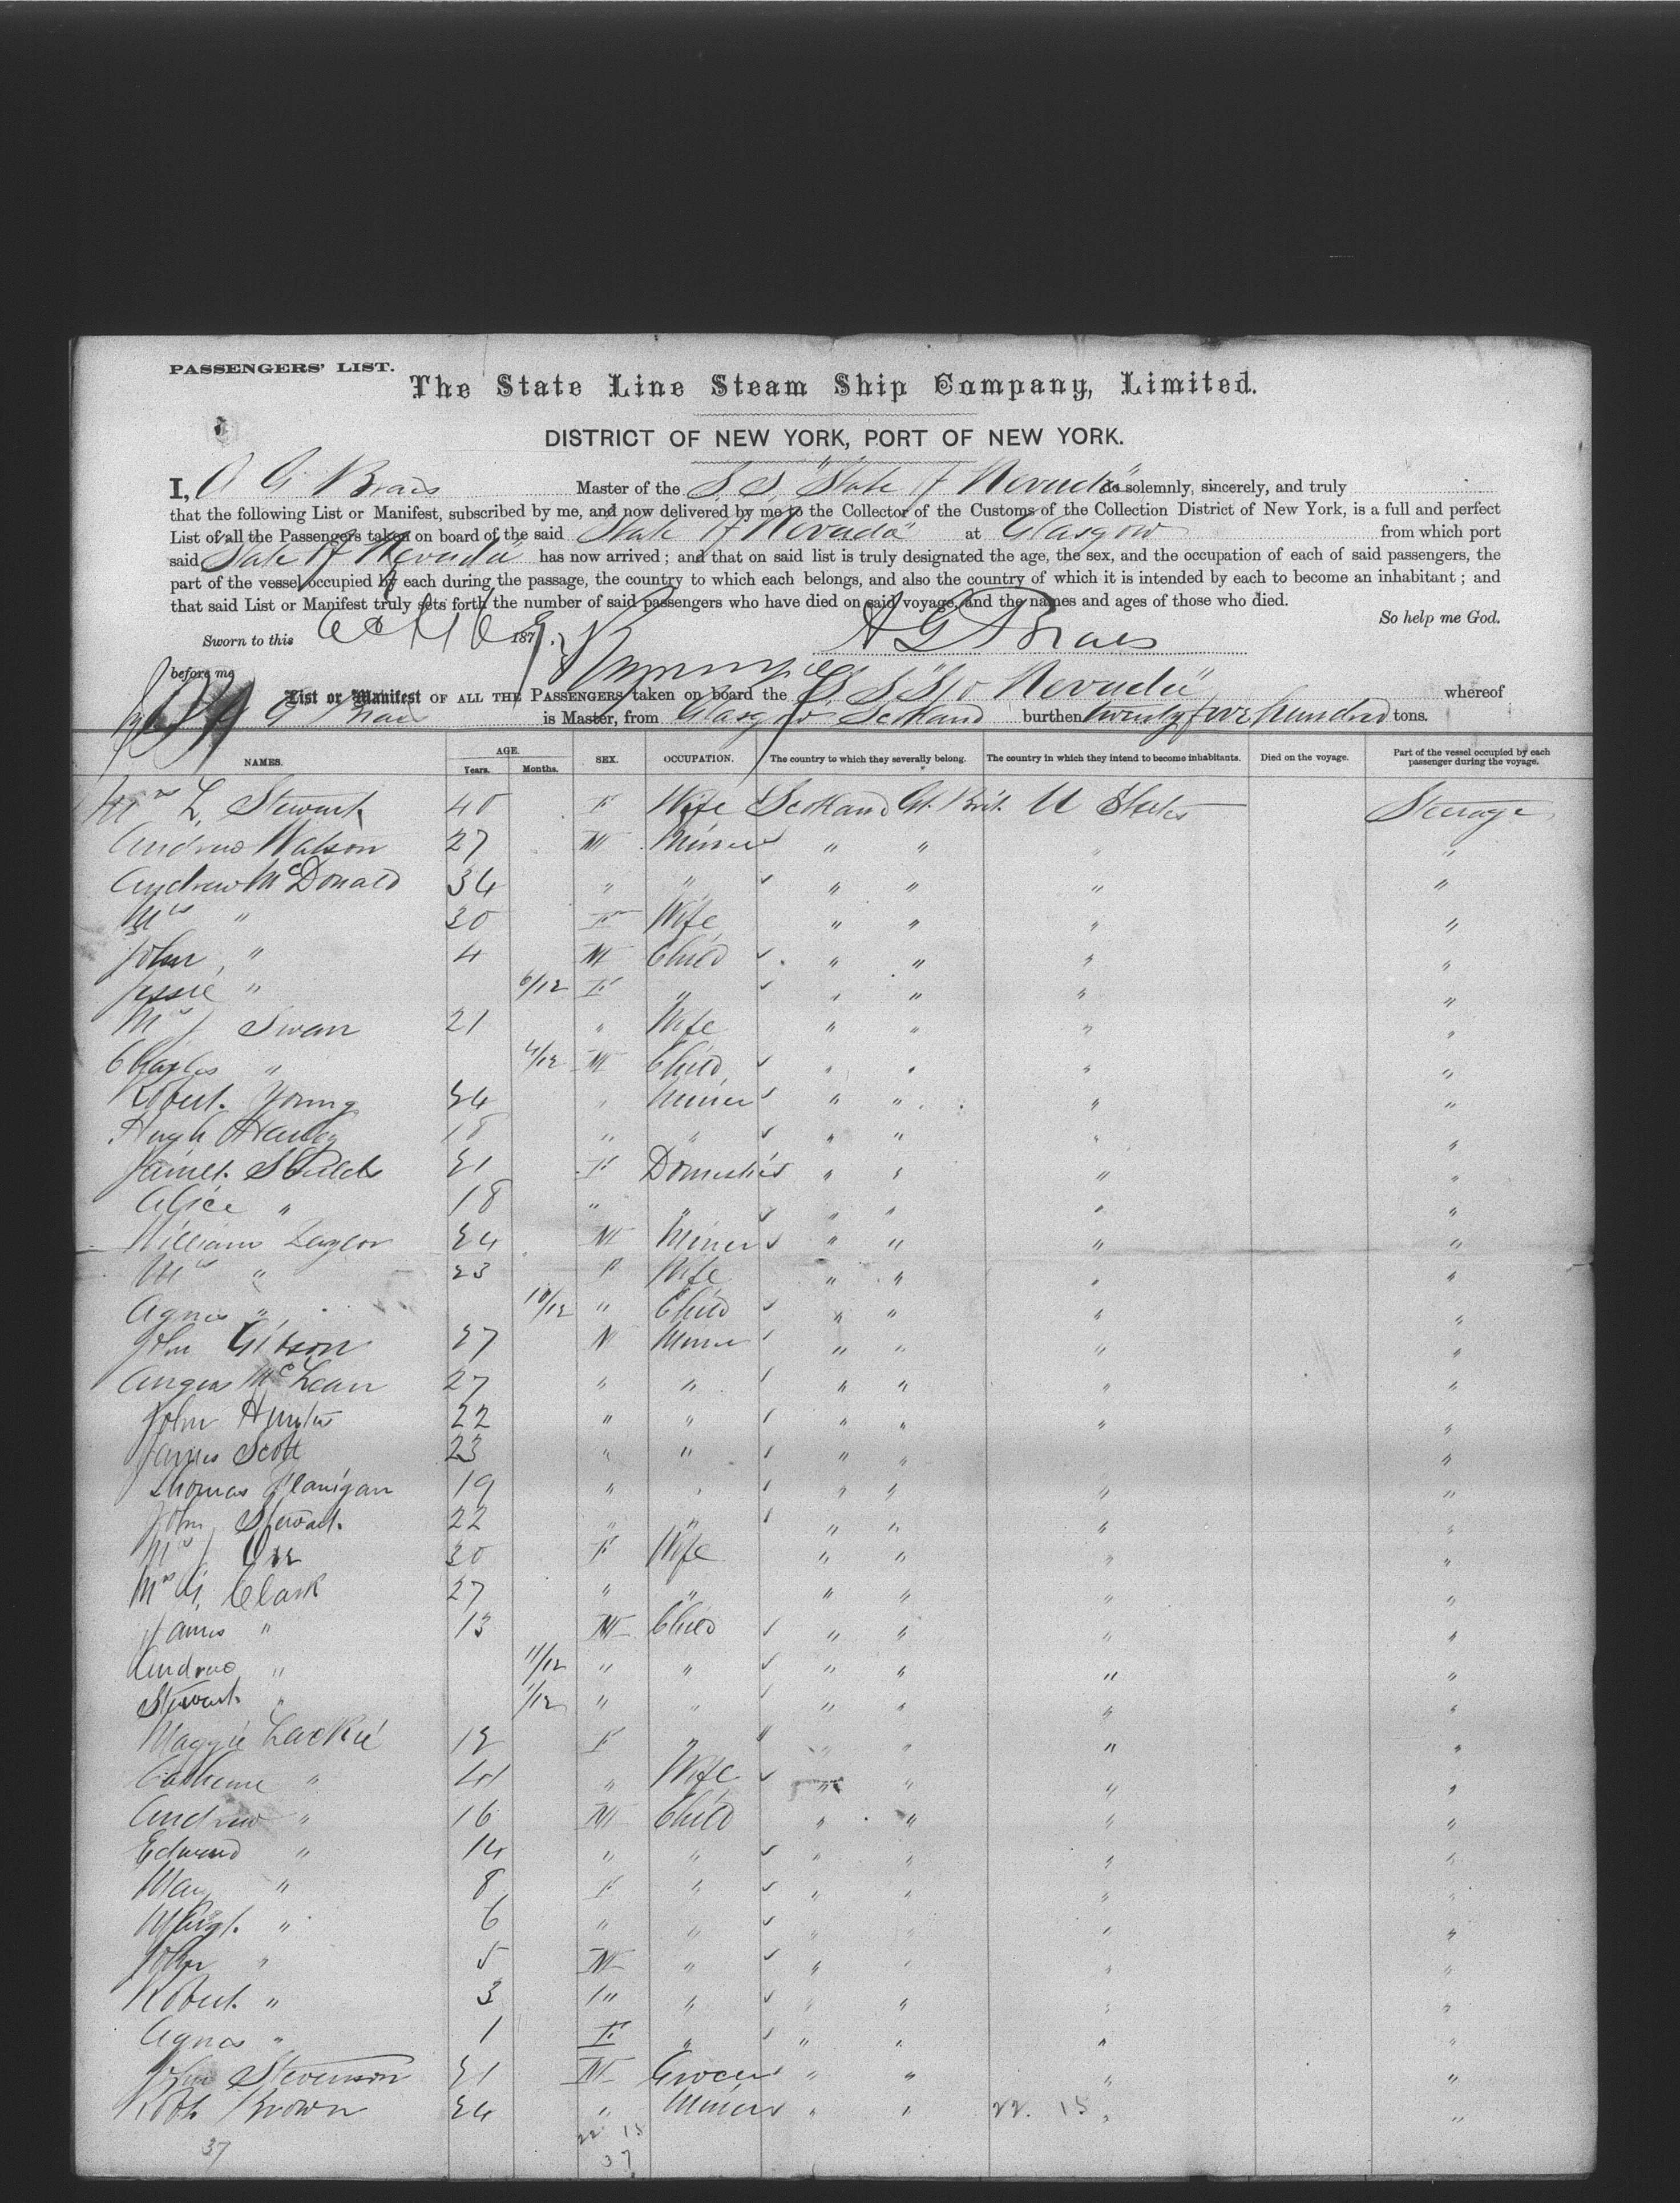 PASSENGERS' LIST.
The State Line Steam Ship Company, Limited.
DISTRICT OF NEW YORK, PORT OF NEW YORK.
I, A G Braes Master of the S.S. "State of Nevada" do solemnly, sincerely, and truly
that the following List or Manifest, subscribed by me, and now delivered by me to the Collector of the Customs of the Collection District of New York, is a full and perfect
List of all the Passengers taken on board of the said State of Nevada" at Glasgow from which port
said State of Nevada" has now arrived ; and that on said list is truly designated the age, the sex, and the occupation of each of said passengers, the
part of the vessel occupied by each during the passage, the country to which each belongs, and also the country of which it is intended by each to become an inhabitant ; and
that said List or Manifest truly sets forth the number of said passengers who have died on said voyage, and the names and ages of those who died.
So help me God.
Sworn to this Oct 187 A G Braes
before me
List or Manifest OF ALL THE PASSENGERS taken on board the S S "S/o Nevada" whereof
A G Braes is Master, from Glasgow Scotland burthen twenty five hundred tons.
NAMES. AGE. Years. Months. SEX. OCCUPATION. The country to which they severally belong. The country in which they intend to become inhabitants. Died on the voyage. Part of the vessel occupied by each passenger during the voyage.
Mrs L. Stewart 40 F Wife Scotland Gt. Brit. U States Steerage
Andrew Watson 27 M Miner " " " "
Andrew McDonald 34 " " " " " "
Mrs " 30 F Wife " " " "
John " 4 M Child " " " "
Jessie " 6/12 F " " " " "
Mrs J Swan 21 " Wife " " " "
Charles " M Child " " " "
Robert Young 24 " Miner " " " "
Hugh 18 " " " " " "
Janet 21 F Domestic " " " "
Alice " 18 " " " " " "
William Taylor 24 M Miner " " " "
Mrs " 23 F Wife " " " "
Agnes " 10/12 " Child " " " "
John Gibson 27 M Miner " " " "
Angus McLean 27 " " " " " "
John Hunter 22 " " " " " "
James Scott 23 " " " " " "
Thomas Flanigan 19 " " " " " "
John Stewart 22 " " " " " "
Mrs J Orr 30 F Wife " " " "
Mrs G. Clark 27 " " " " " "
James " 13 M Child " " " "
Andrew " 11/12 " " " " " "
Stewart " 1/12 " " " " " "
Maggie Lackie 12 F " " " " "
Catherine " 41 " Wife " " " "
Andrew " 16 M Child " " " "
Edward " 14 " " " " " "
Mary " 8 F " " " " "
Margt. " 6 " " " " " "
John " 5 M " " " " "
Robert " 3 " " " " " "
Agnes " 1 F " " " " "
John Stevenson 21 M Grocer " " " "
Robt. Brown 24 " Miner " " " "
22. 15
22 15
37
37